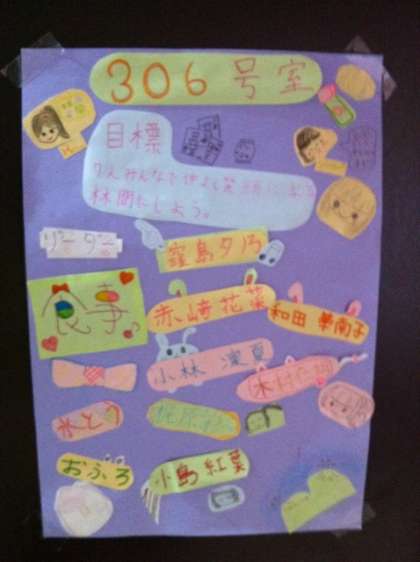 306号室
目標
7人みんなで仲よく笑顔になる
林間にしよう。
リーダー
窪島夕乃
食事
赤崎花菜
和田華南子
小林凜夏
木村
おふろ
小島紅葉